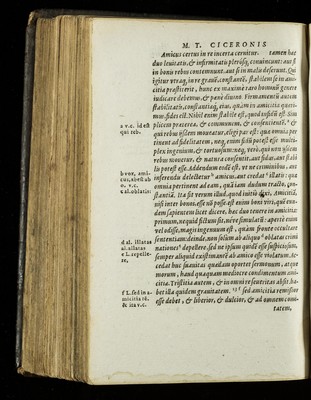 M. T. CICERONIS
Amicus certus in re incerta cernitur. tamen hæc
duo leuitatis, & infirmitatis plerosq; conuincunt: aut si
in bonis rebus contemnunt, aut si in malis deserunt. Qui
igitur vtraq; in re grauē, constantē, stabilem se in ami-
citia præstiterit, hunc ex maximè raro hominū genere
iudicare debemus, & penè diuino. Firmamentū autem
stabilitatis, constantiæq; eius, quàm in amicitia quæri-
mus, fides est. Nihil enim stabile est, quod infidū est. Sim
plicem præterea, & communem, & consentientē, &
qui rebus iisdem moueatur, eligi par est: quæ omnia per
tinent ad fidelitatem, neq; enim fidū potest esse multi-
plex ingenium, & tortuosum: neq; verò, qui non iisdem
rebus mouetur, & natura consentit, aut fidus, aut stabi
lis potest esse. Addendum eodē est, vt ne criminibus, aut
inferendis delectetur amicus, aut credat illatis: quæ
omnia pertinent ad eam, quā iam dudum tracto, con-
stantiā. Ita fit verum illud, quod initio dixi, Amicitiā,
nisi inter bonos, esse nō posse. est enim boni viri, quē eun-
dem sapientem licet dicere, hæc duo tenere in amicitia:
primum, nequid fictum sit, néve simulatū: apertè enim
vel odisse, magis ingenuum est, quàm fronte occultare
sententiam: deinde, non solùm ab aliquo oblatas crimi
nationes depellere, sed ne ipsum quidē esse suspiciosum,
semper aliquid existimantē ab amico esse violatum. Ac-
cedat huc suauitas quædam oportet sermonum, atque
morum, haud quaquam mediocre condimentum ami-
citiæ. Tristitia autem, & in omni re seueritas absit. ha-
bet illa quidem grauitatem, sed amicitia remissior
esse debet, & liberior, & dulcior, & ad omnem comi-
tatem,
a v.c. id est
qui reb.
b vox, ami-
cus, abest ab
o. v.c.
c al. oblatis:
d al. illatas
al. allatas
e L. repelle-
re,
f L. sed in a-
micitia rē.
& ita v.c.